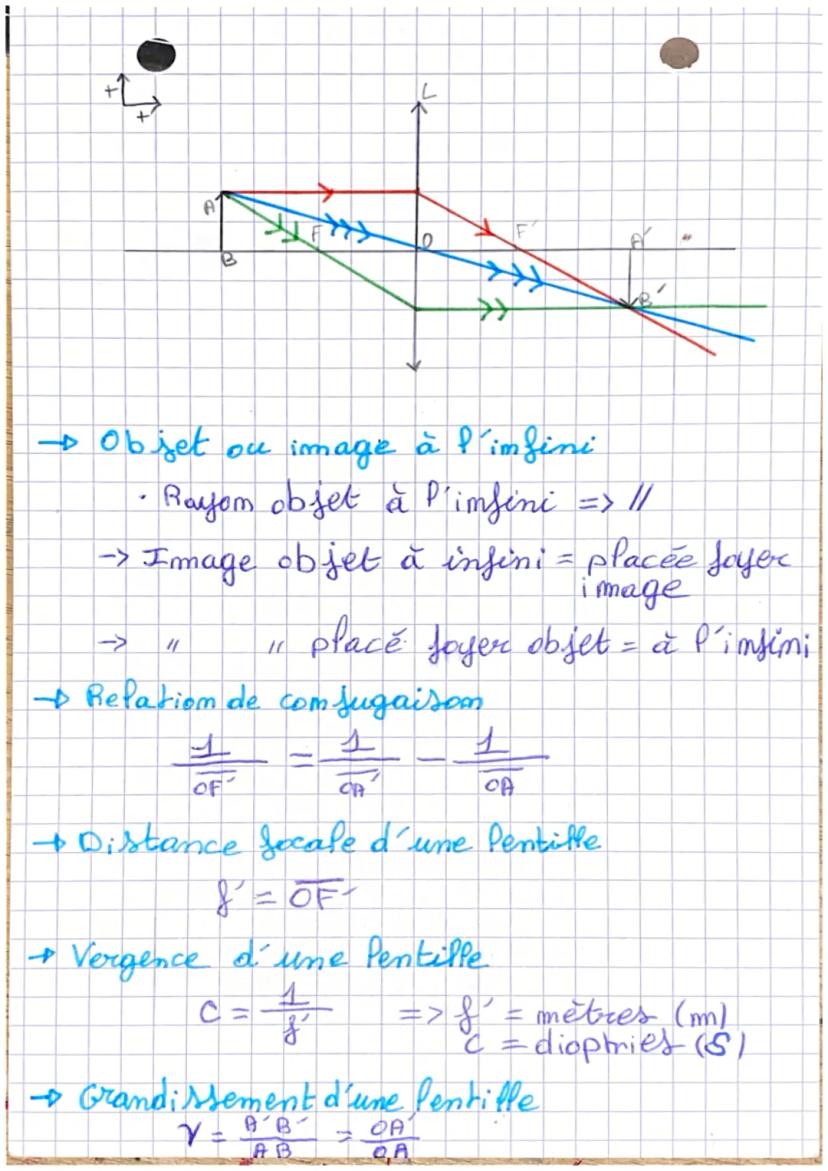 +
+
L
A
B
F
O
F'
A'
"
B'
→ Objet ou image à l'infini
· Rayon objet à l'infini => //
-> Image objet à infini = placée foyer
image
-> " " placé foyer objet = à l'infini
→ Relation de conjugaison
1/OF' = 1/OA' - 1/OA
→ Distance focale d'une lentille
f' = OF'
→ Vergence d'une lentille
C = 1/f' => f' = mètres (m)
C = dioptries (δ)
→ Grandissement d'une lentille
γ = A'B'/AB = OA'/OA